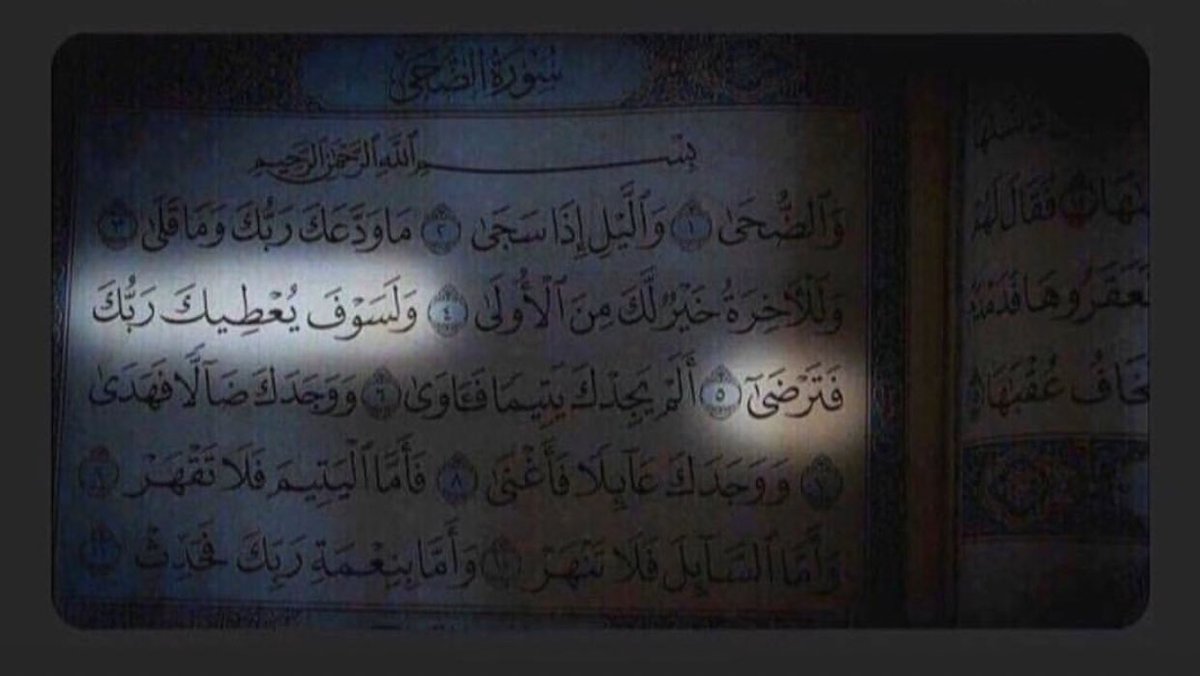 سُورَةُ الضُّحَىٰ
بِسْمِ ٱللَّهِ ٱلرَّحْمَٰنِ ٱلرَّحِيمِ
وَٱلضُّحَىٰ ١ وَٱلَّيْلِ إِذَا سَجَىٰ ٢ مَا وَدَّعَكَ رَبُّكَ وَمَا قَلَىٰ ٣
وَلَلْءَاخِرَةُ خَيْرٌ لَّكَ مِنَ ٱلْأُولَىٰ ٤ وَلَسَوْفَ يُعْطِيكَ رَبُّكَ
فَتَرْضَىٰٓ ٥ أَلَمْ يَجِدْكَ يَتِيمًا فَـَٔاوَىٰ ٦ وَوَجَدَكَ ضَآلًّا فَهَدَىٰ
٧ وَوَجَدَكَ عَآئِلًا فَأَغْنَىٰ ٨ فَأَمَّا ٱلْيَتِيمَ فَلَا تَقْهَرْ ٩
وَأَمَّا ٱلسَّآئِلَ فَلَا تَنْهَرْ ١٠ وَأَمَّا بِنِعْمَةِ رَبِّكَ فَحَدِّثْ ١١
فَقَالَ لَهُمْ
فَعَقَرُوهَا فَدَمْدَمَ
يَخَافُ عُقْبَٰهَا